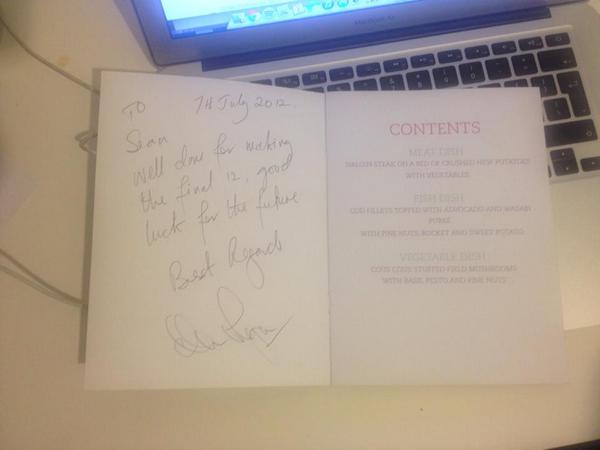 TO 7th July 2012.
Sean
well done for making
the final 12, good
luck for the future
Best Regards
CONTENTS
MEAT DISH
SIRLOIN STEAK ON A BED OF CRUSHED NEW POTATOES
WITH VEGETABLES
FISH DISH
COD FILLETS TOPPED WITH ADVOCADO AND WASABI
PUREE
WITH PINE NUTS, ROCKET AND SWEET POTATO
VEGETABLE DISH
COUS COUS STUFFED FIELD MUSHROOMS
WITH BASIL PESTO AND PINE NUTS
MacBook Air